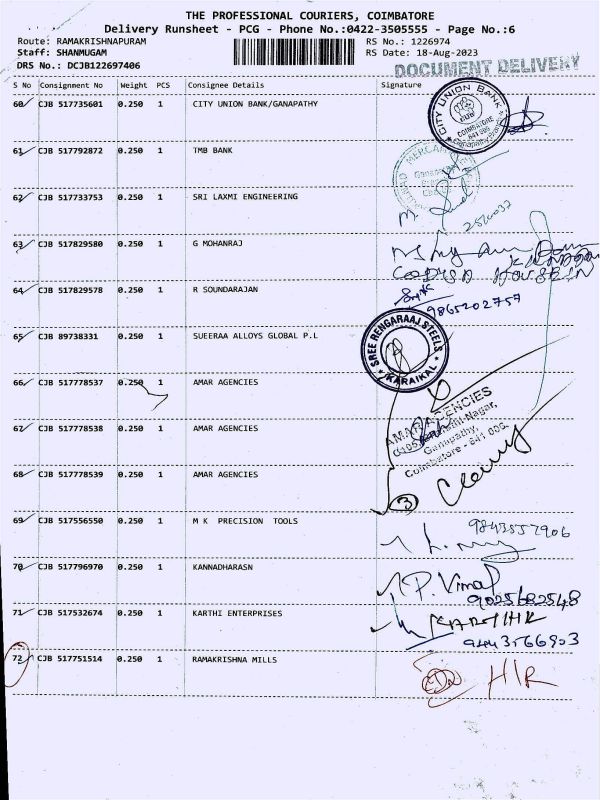 THE PROFESSIONAL COURIERS, COIMBATORE
Delivery Runsheet - PCG - Phone No.:0422-3505555 - Page No.:6
Route: RAMAKRISHNAPURAM RS No.: 1226974
Staff: SHANMUGAM RS Date: 18-Aug-2023
DRS No.: DCJB122697406 DOCUMENT DELIVERY
S No Consignment No Weight PCS Consignee Details Signature
60 CJB 517735601 0.250 1 CITY UNION BANK/GANAPATHY
CITY UNION BANK
COIMBATORE
641 006
Ganapathy Branch
61 CJB 517792872 0.250 1 TMB BANK
62 CJB 517733753 0.250 1 SRI LAXMI ENGINEERING
63 CJB 517829580 0.250 1 G MOHANRAJ
64 CJB 517829578 0.250 1 R SOUNDARAJAN
9865202757
65 CJB 89738331 0.250 1 SUEERAA ALLOYS GLOBAL P.L
SREE RENGARAAJ STEELS
KARAIKAL
66 CJB 517778537 0.250 1 AMAR AGENCIES
67 CJB 517778538 0.250 1 AMAR AGENCIES
AMAR AGENCIES
Ganapathy,
Coimbatore - 641 006.
68 CJB 517778539 0.250 1 AMAR AGENCIES
3
69 CJB 517556550 0.250 1 M K PRECISION TOOLS
9843557906
70 CJB 517796970 0.250 1 KANNADHARASN
P. Vimal
9025682548
71 CJB 517532674 0.250 1 KARTHI ENTERPRISES
KARTHIK
9443566903
72 CJB 517751514 0.250 1 RAMAKRISHNA MILLS
H/R